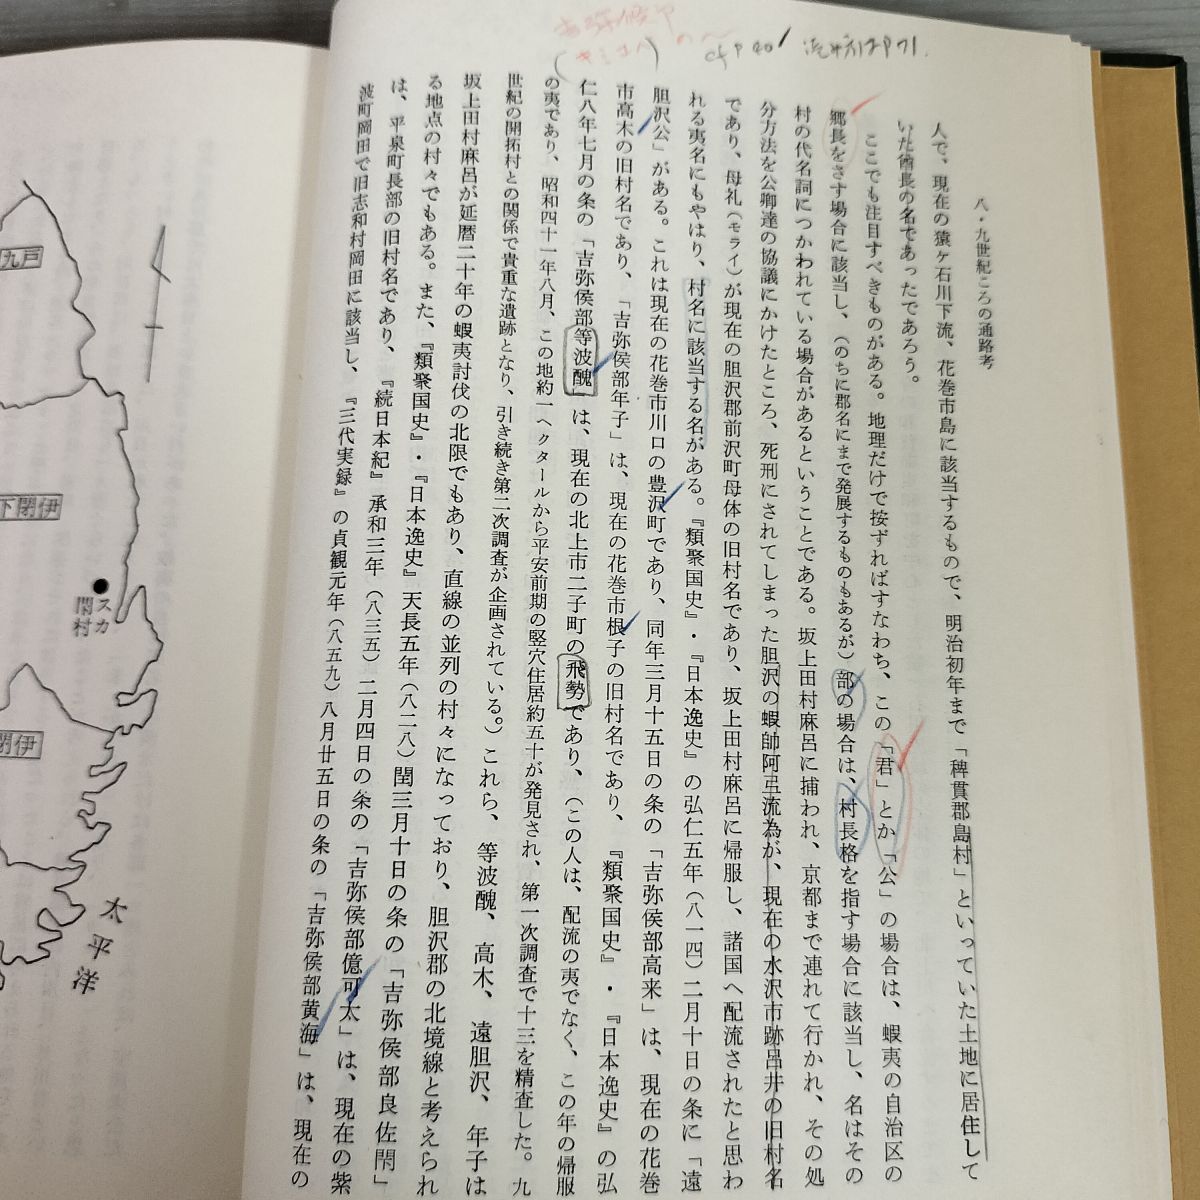 吉弥侯部
の〜
(キミコベ)
cf P 40
八・九世紀ころの通路考
人で、現在の猿ヶ石川下流、花巻市島に該当するもので、明治初年まで「稗貫郡島村」といっていた土地に居住して
いた酋長の名であったであろう。
ここでも注目すべきものがある。地理だけで按ずればすなわち、この「君」とか「公」の場合は、蝦夷の自治区の
郷長をさす場合に該当し、(のちに郡名にまで発展するものもあるが)部の場合は、村長格を指す場合に該当し、名はその
村の代名詞につかわれている場合があるということである。坂上田村麻呂に捕われ、京都まで連れて行かれ、その処
分方法を公卿達の協議にかけたところ、死刑にされてしまった胆沢の蝦帥阿弖流為が、現在の水沢市跡呂井の旧村名
であり、母礼(モライ)が現在の胆沢郡前沢町母体の旧村名であり、坂上田村麻呂に帰服し、諸国へ配流されたと思わ
れる夷名にもやはり、村名に該当する名がある。『類聚国史』・『日本逸史』の弘仁五年(八一四)二月十日の条に「遠
胆沢公」がある。これは現在の花巻市川口の豊沢町であり、同年三月十五日の条の「吉弥侯部高来」は、現在の花巻
市高木の旧村名であり、「吉弥侯部年子」は、現在の花巻市根子の旧村名であり、『類聚国史』・『日本逸史』の弘
仁八年七月の条の「吉弥侯部等波醜」は、現在の北上市二子町の飛勢であり、(この人は、配流の夷でなく、この年の帰服
の夷であり、昭和四十一年八月、この地約一ヘクタールから平安前期の竪穴住居約五十が発見され、第一次調査で十三を精査した。九
世紀の開拓村との関係で貴重な遺跡となり、引き続き第二次調査が企画されている。)これら、等波醜、高木、遠胆沢、年子は
坂上田村麻呂が延暦二十年の蝦夷討伐の北限でもあり、直線の並列の村々になっており、胆沢郡の北境線と考えられ
る地点の村々でもある。また、『類聚国史』・『日本逸史』天長五年(八二八)閏三月十日の条の「吉弥侯部良佐閇」
は、平泉町長部の旧村名であり、『続日本紀』承和三年(八三五)二月四日の条の「吉弥侯部億可太」は、現在の紫
波町岡田で旧志和村岡田に該当し、『三代実録』の貞観元年(八五九)八月廿五日の条の「吉弥侯部黄海」は、現在の
九戸
下閉伊
スカ
閇村
閉伊
太平洋